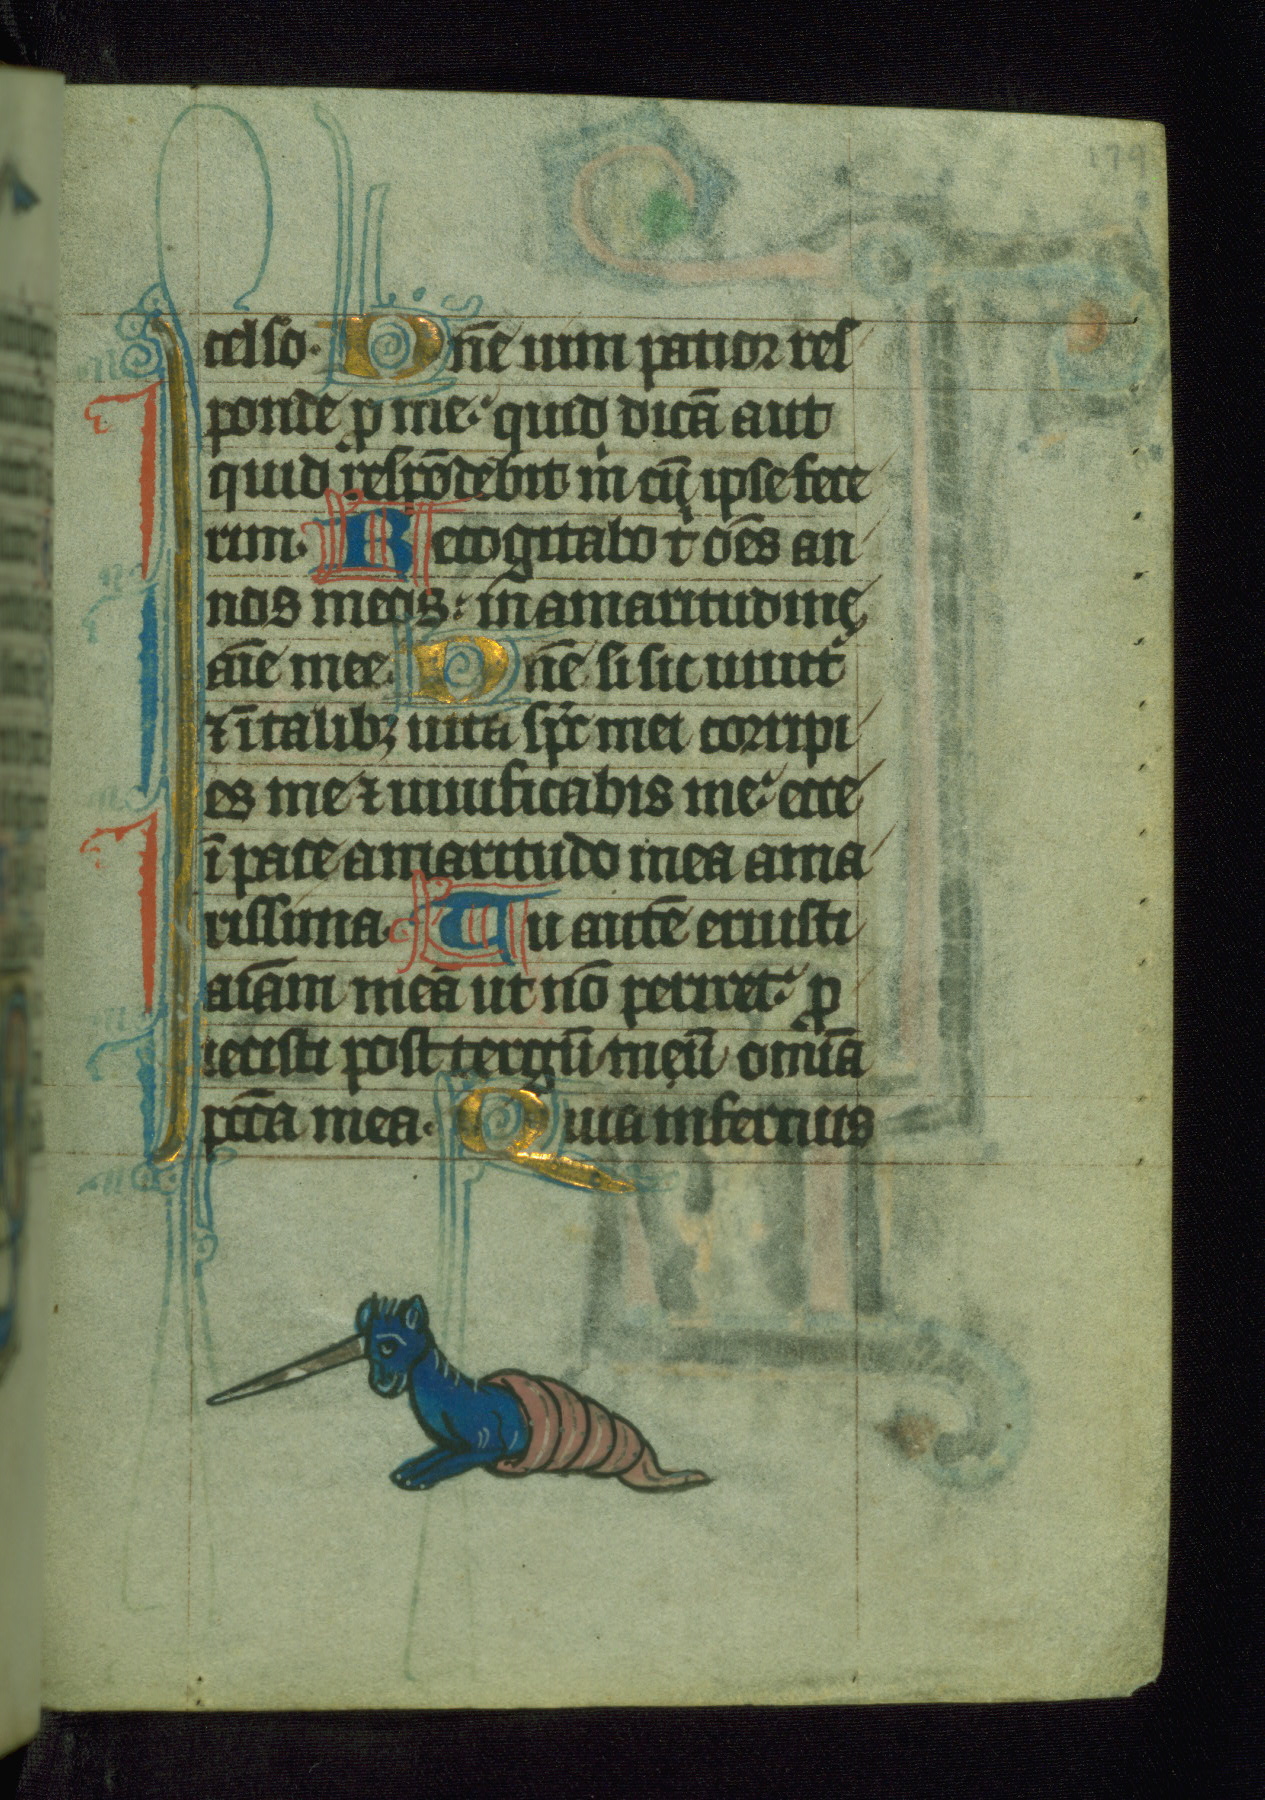 179
celso. Dn̄e uim patior res
ponde ꝓ me. quid dicā aut
quid respōdebit m̍ cū ip̄se fece
rim. Recogitabo t̍ oēs an
nos meos: in amaritudine
aīe mee. Dn̄e si sic uiuit᷑
⁊ ī talibꝫ uita sp̄c mei corripi
es me ⁊ uiuificabis me. ecce
ī pace amaritudo mea ama
rissima. Tu autē eruisti
aīam meā ut nō periret. ꝓ
iecisti post tergū meū omīa
pctā mea. Quia infernus